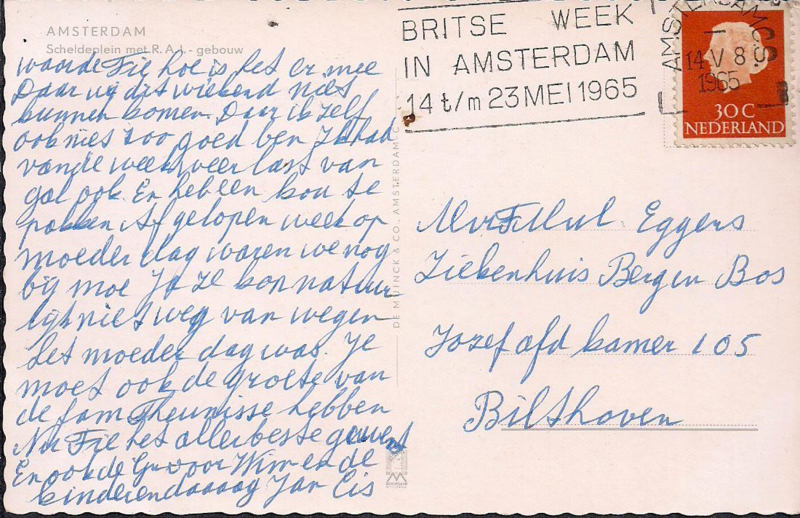 AMSTERDAM
Scheldeplein met R.A.I. - gebouw
waarde Fie hoe is het er mee
Daar wij dit wiekend niet
kunnen komen. Daar ik zelf
ook niet zoo goed ben Ik had
van de week weer last van
gal ook. En heb een kou te
pakken Afgelopen week op
moeder dag waren we nog
bij moe Ja ze kon natuur
lijk niet weg van wegen
het moeder dag was. Je
moet ook de groete van
de fam Theunisse hebben
Nu Fie het allerbeste gewenst
En ook de Gr voor Wim en de
kinderen daaaag Jan Cis
DE MUINCK & CO. AMSTERDAM-C.
BRITSE WEEK
IN AMSTERDAM
14 t/m 23 MEI 1965
AMSTERDAM CS
14 V 8
1965
30 C
NEDERLAND
Mvr F Mul Eggers
Ziekenhuis Berg en Bos
Jozef afd kamer 105
Bilthoven